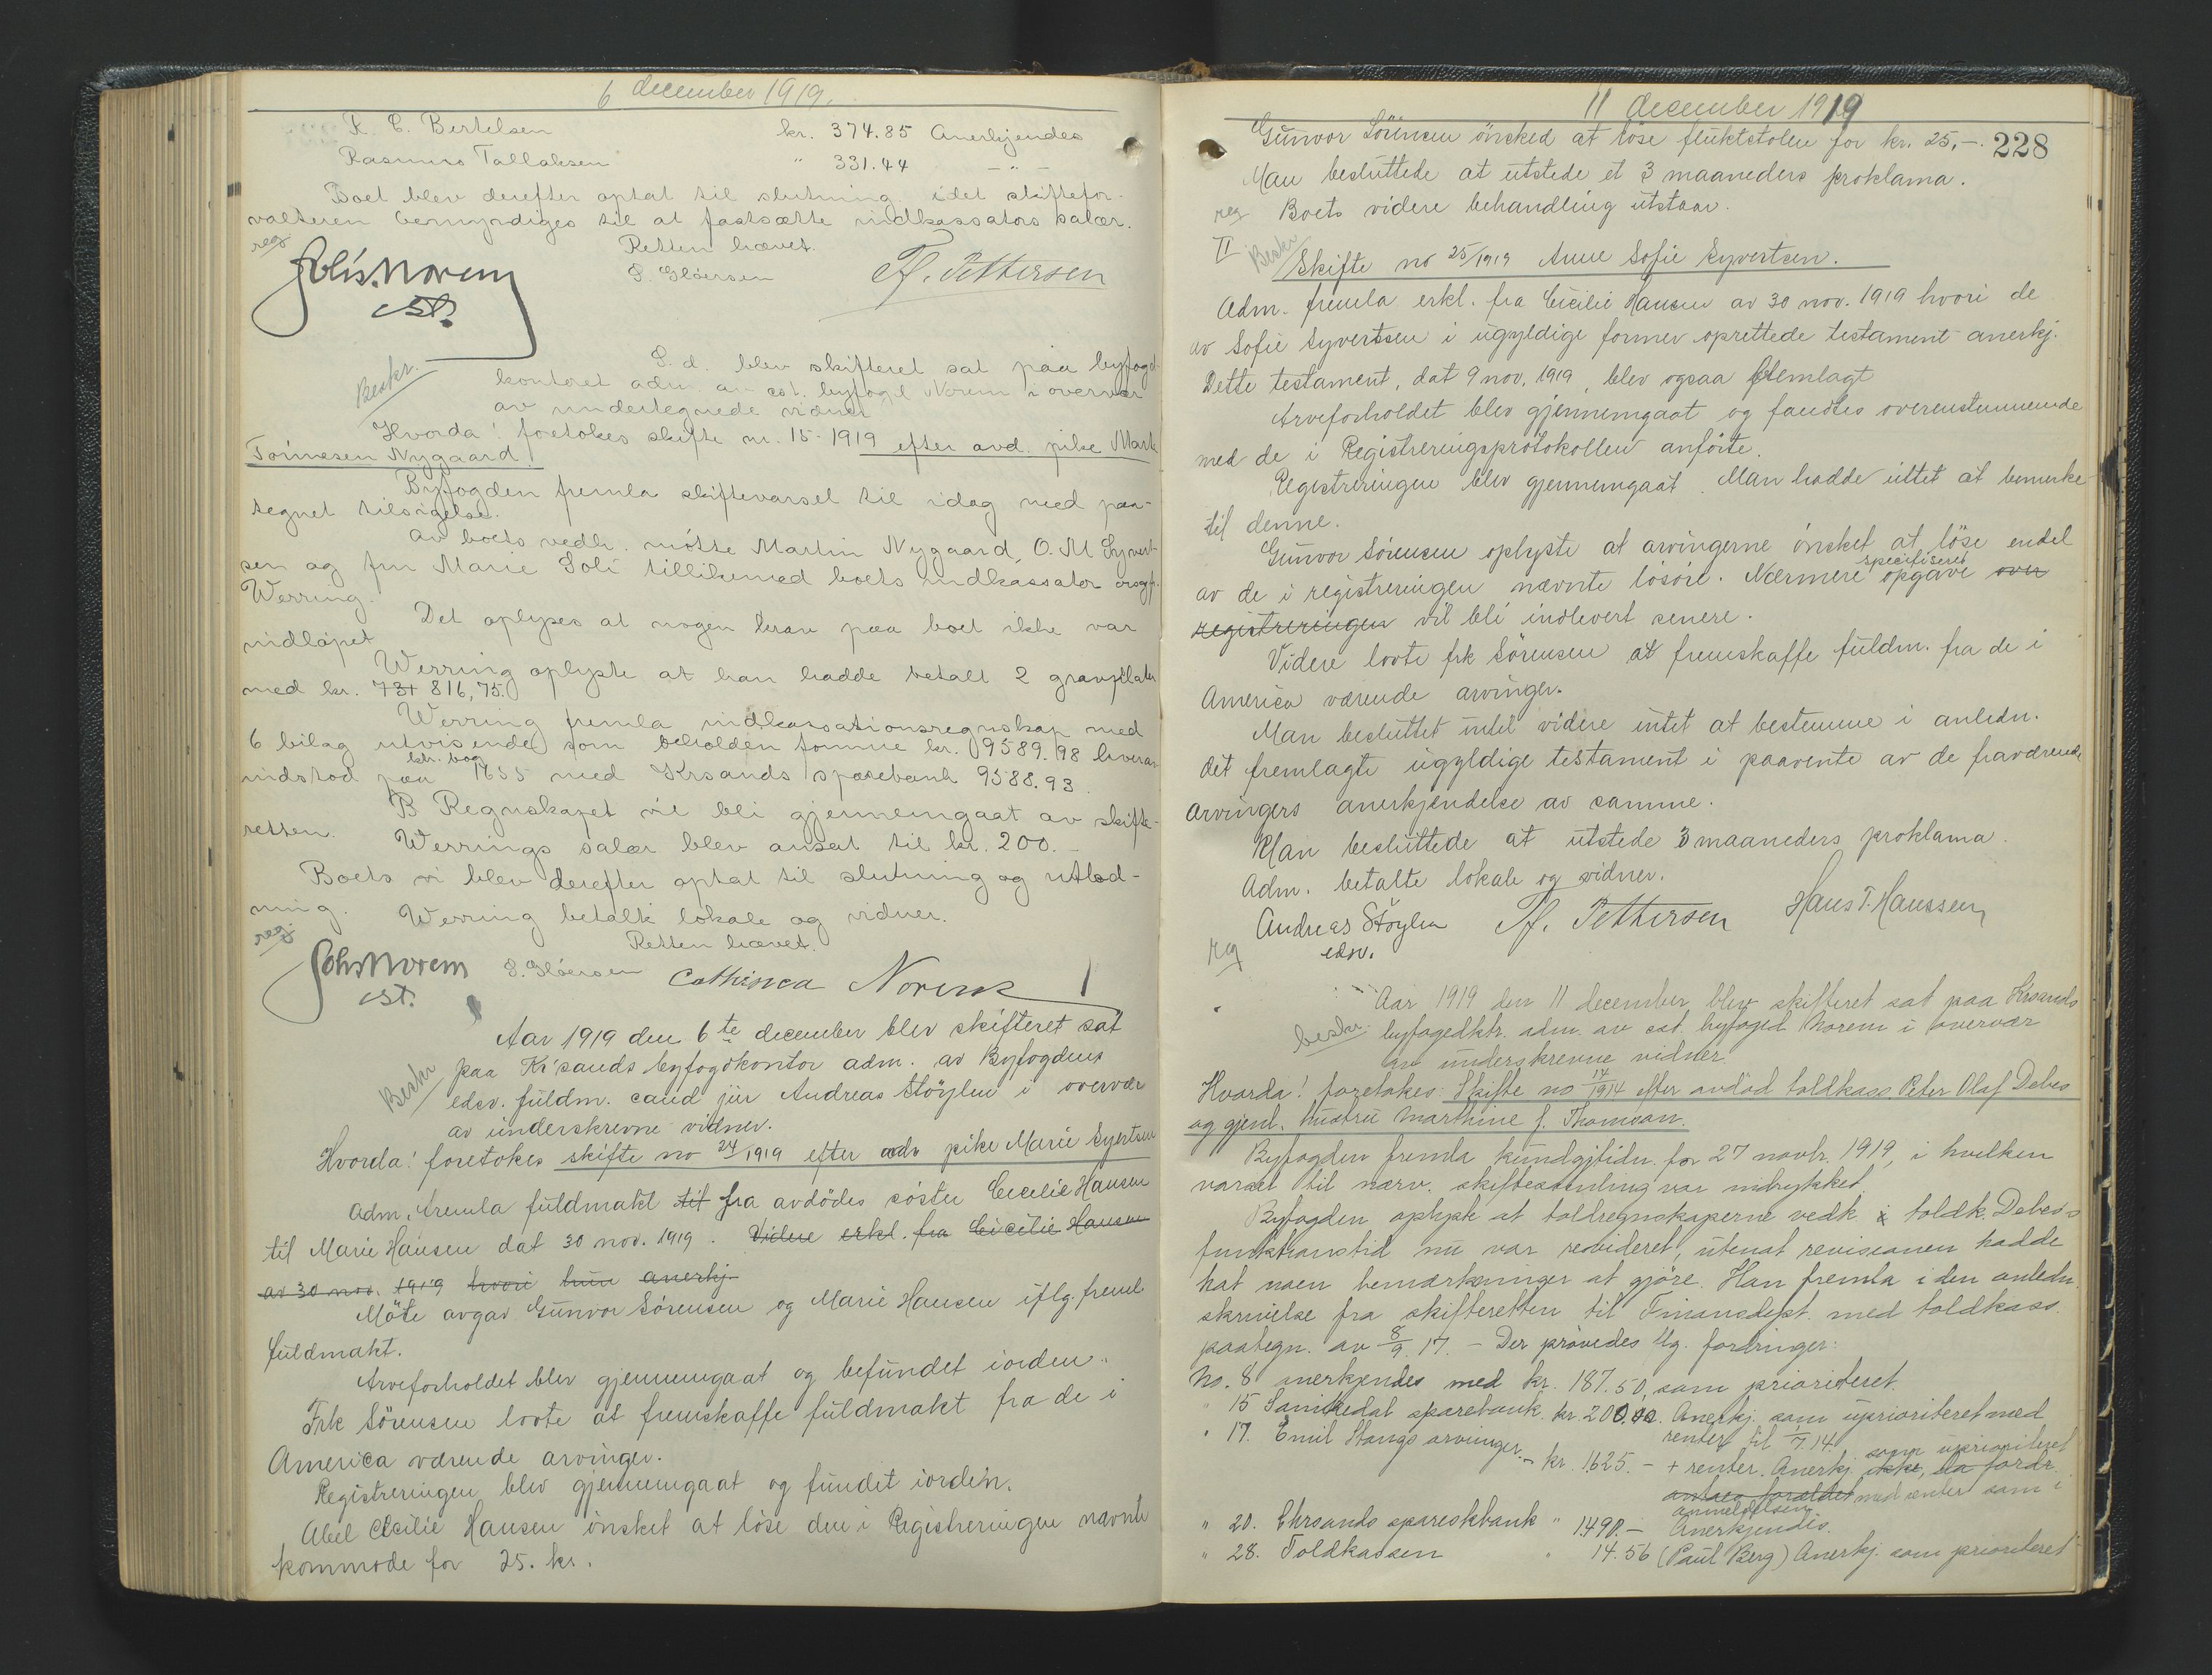 6 december 1919.
K. C. Bertelsen kr. 374.85 Anerkjendes
Rasmus Tallaksen " 331.44 - " -
Boet blev derefter optat til slutning idet skiftefor-
valteren bemyndiges til at fastsætte indkassators salær.
reg
Retten hævet.
Johs. Norem
cst.
S. Gløersen
Pettersen
Beskr.
S. d. blev skifteret sat paa byfogd
kontoret adm. av cst. byfogd Norem i overvær
av undertegnede vidner
Hvorda! foretokes skifte nr. 15-1919 efter avd. pike Marte
Tönnesen Nygaard
Byfogden fremla skiftevarsel til idag med paa-
tegnet tilsigelse.
Av boets vedk. møtte Martin Nygaard, O. M. Syvert-
sen og fru Marie Soli tillikemed boets indkassator
Werring.
Det oplyses at nogen krav paa boet ikke var
indløpet
Werring oplyste at han hadde betalt 2 gravplater
med kr. 73+ 816,75.
Werring fremla indkassationsregnskap med
6 bilag utvisende som beholden formue kr. 9589.98 hvorav
indstod paa ktr. bog 1655 med Krsands sparebank 9588.93.
Regnskapet vil bli gjennemgaat av skifte-
retten.
Werrings salær blev ansat til kr. 200.-
Boets vi blev derefter optat til slutning og utlod-
ning.
Werring betalte lokale og vidner.
reg.
Retten hævet.
Johs Norem
cst.
S. Gløersen
Cathinca Norem
Aar 1919 den 6te december blev skifteret sat
Beskr
paa Kr'sands byfogdkontor adm. av Byfogdens
edsv. fuldm. cand jur Andreas Stöylen i overvær
av underskrevne vidner.
Hvorda! foretokes skifte no 24/1919 efter adv pike Marie Syvertsen
Adm. fremla fuldmakt til fra avdödes söster Cecelie Hansen
til Marie Hansen dat 30 nov. 1919. Videre erkl. fra Cicilie Hansen
av 30 nov. 1919 hvori hun anerkj.
Möte avgav Gunvor Sörensen og Marie Hansen iflg. freml
fuldmakt.
Arveforholdet blev gjennemgaat og befundet iorden.
Frk Sörensen lovte at fremskaffe fuldmakt fra de i
America værende arvinger.
Registreringen blev gjennemgaat og fundet iorden.
Abel Cecilie Hansen önsket at löse den i Registreringen nævnte
kommode for 25. kr.
11 december 1919
228
Gunvor Sörensen önsked at löse fluktstolen for kr. 25,-.
Man besluttede at utstede et 3 maaneders proklama.
reg Boets videre behandling utstaar.
II
Beskr
Skifte no 25/1919 Anne Sofie Syvertsen.
Adm. fremla erkl. fra Cicilie Hansen av 30 nov. 1919 hvori de
av Sofie Syvertsen i ugyldige former oprettede testament anerkj.
Dette testament, dat 9 nov. 1919, blev ogsaa fremlagt
Arveforholdet blev gjennemgaat og fandtes overenstemmende
med de i Registreringsprotokollen anförte.
Registreringen blev gjennemgaat. Man hadde intet at bemerke
til denne.
Gunvor Sörensen oplyste at arvingerne önsket at löse endel
av de i registreringen nævnte lösöre. Nærmere specifiseret opgave over
registreringen vil bli indlevert senere.
Videre lovte frk Sörensen at fremskaffe fuldm. fra de i
America værende arvinger.
Man besluttet intil videre intet at bestemme i anledn.
det fremlagte ugyldige testament i paavente av de fraværende
arvingers anerkjendelse av samme.
Man besluttede at utstede 3 maaneders proklama.
Adm. betalte lokale og vidner.
Andreas Stöylen
edsv.
Pettersen
Hans T. Hanssen
rg
Aar 1919 den 11 december blev skifteret sat paa Krsands
beskr.
byfogedktr. adm. av cst. byfoged Norem i overvær
av underskrevne vidner
Hvorda! foretokes: Skifte no 14/1914 efter avdöd toldkass. Peter Olaf Debes
og gjenl. hustru Marthine f. Thomson.
Byfogden fremla kundgjtidn. for 27 novbr. 1919, i hvilken
varsel til nærv. skiftesamling var indrykket.
Byfogden oplyste at toldregnskaperne vedk. i toldk. Debes's
funktionstid nu var revideret, utenat revisionen hadde
hat noen bemærkninger at gjöre. Han fremla i den anledn.
skrivelse fra skifteretten til Finansdept. med toldkass.
paategn. av 8/9. 17. - Der prövedes flg. fordringer:
No. 8 anerkjendes med kr. 187.50, som prioriteret.
" 15 sparebank kr. 200.00. Anerkj. som uprioriteret med
renter til 1/7.14.
" 17. Emil Stangs arvinger. - kr. 1625. - + renter. Anerkj. som uprioriteret ikke, da fordr.
ansees forældet med renter som i
anmeldelsen
" 20. Chrsands sparesbank " 1490.- Anerkjendes.
" 28. Toldkassen " 14.56 (Paul Berg) Anerkj. som prioriteret